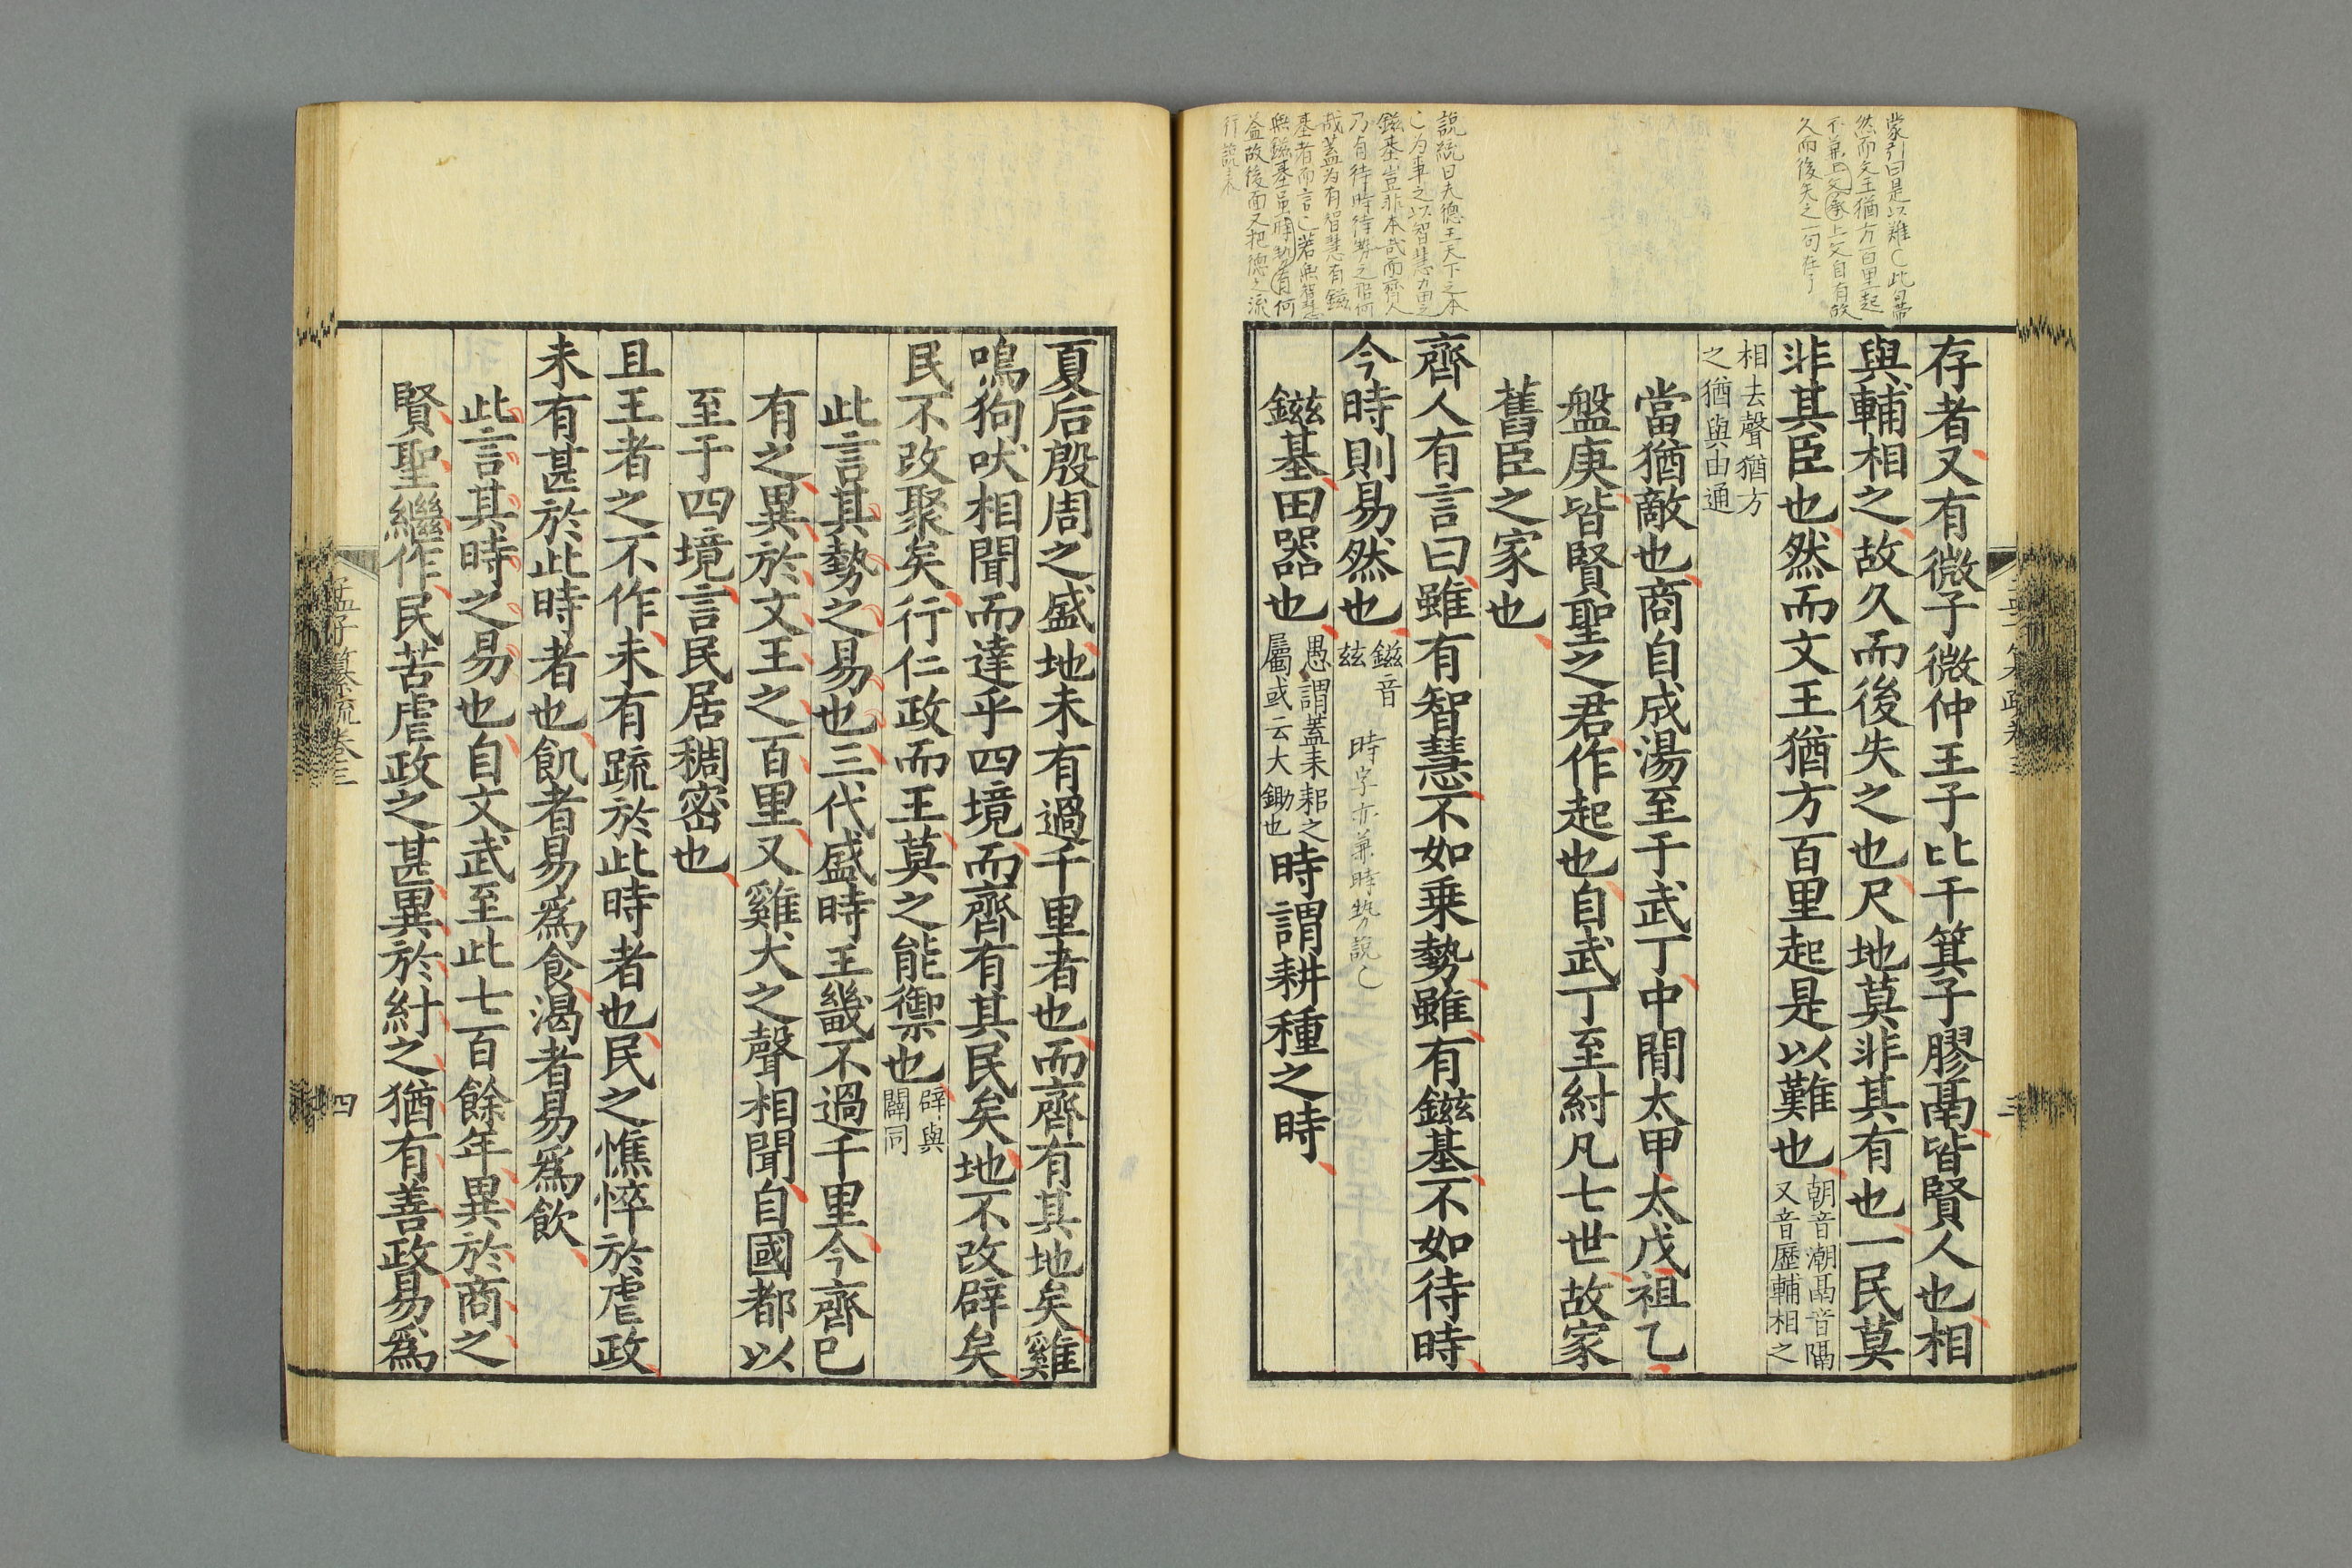 蒙引曰是以難〇此句帶
然而文王猶方百里起
不兼上文承上文自有故
久而後失之一句在了
存者又有微子微仲王子比干箕子膠鬲皆賢人也相
與輔相之故久而後失之也尺地莫非其有也一民莫
非其臣也然而文王猶方百里起是以難也
朝音潮鬲音隔
又音歷輔相之
相去聲猶方
之猶與由通
當猶敵也商自成湯至于武丁中間太甲太戊祖乙
盤庚皆賢聖之君作起也自武丁至紂凡七世故家
舊臣之家也
說統曰夫德王天下之本
鎡基豈非本哉而齊人
乃有待時待勢之語何
哉蓋為有智慧有鎡
基者而言〇若無智慧
無鎡基虽時勢有何
益故後面又把德之流
行說來
齊人有言曰雖有智慧不如乗勢雖有鎡基不如待時
今時則易然也
鎡音
玆
時字亦兼時勢說〇
鎡基田器也
愚謂蓋耒耜之
屬或云大鋤也
時謂耕種之時
夏后殷周之盛地未有過千里者也而齊有其地矣雞
鳴狗吠相聞而達乎四境而齊有其民矣地不改辟矣
民不改聚矣行仁政而王莫之能禦也
辟與
闢同
此言其勢之易也三代盛時王畿不過千里今齊已
有之異於文王之百里又雞犬之聲相聞自國都以
至于四境言民居稠密也
且王者之不作未有疏於此時者也民之憔悴於虐政
未有甚於此時者也飢者易爲食渴者易爲飮
此言其時之易也自文武至此七百餘年異於商之
賢聖繼作民苦虐政之甚異於紂之猶有善政易爲
孟子纂疏卷三
四